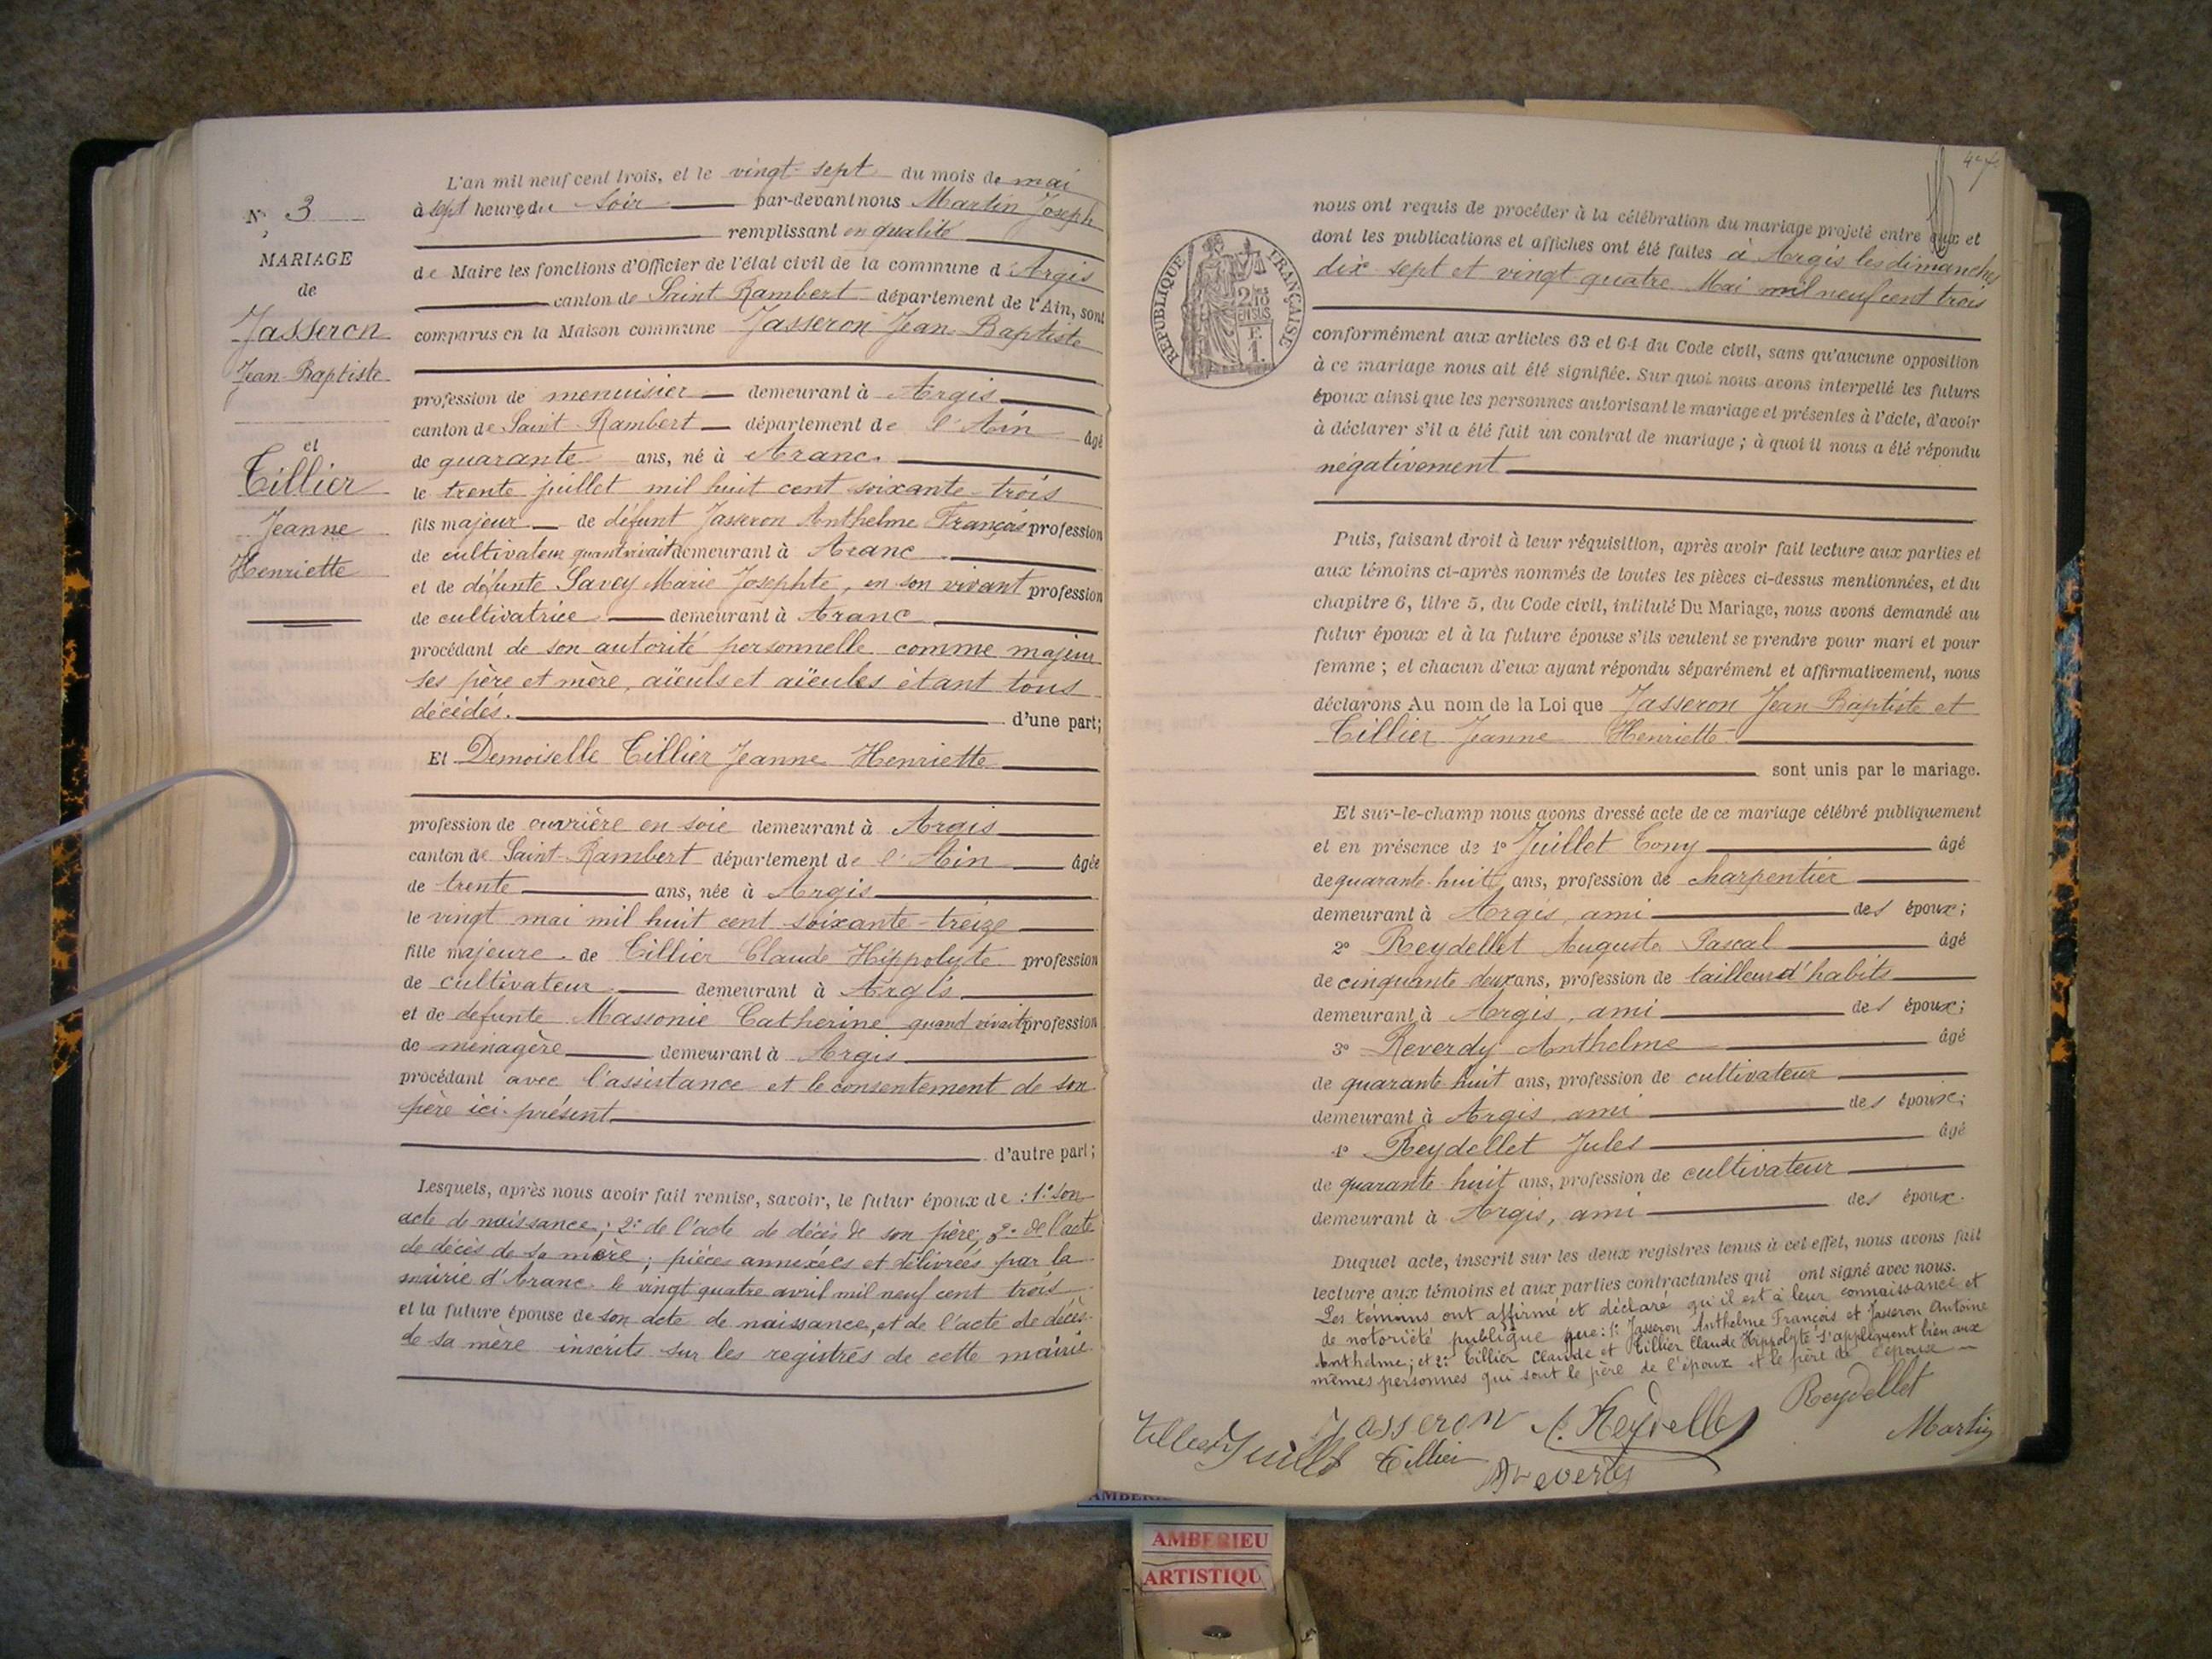 N° 3
MARIAGE
de
Jasseron
Jean-Baptiste
et
Tillier
Jeanne
Henriette
L'an mil neuf cent trois, et le vingt-sept du mois de mai
à sept heure du Soir par-devant nous Martin Joseph
remplissant en qualité
de Maire les fonctions d'Officier de l'état civil de la commune d'Argis
canton de Saint Rambert département de l'Ain, sont
comparus en la Maison commune Jasseron Jean-Baptiste
profession de menuisier demeurant à Argis
canton de Saint-Rambert département de l'Ain âgé
de quarante ans, né à Aranc.
le trente juillet mil huit cent soixante-trois
fils majeur de défunt Jasseron Anthelme François profession
de cultivateur quand vivait demeurant à Aranc
et de défunte Savey Marie Josephte, en son vivant profession
de cultivatrice demeurant à Aranc
procédant de son autorité personnelle comme majeur
ses père et mère, aïeuls et aïeules étant tous
décédés. d'une part;
Et Demoiselle Tillier Jeanne Henriette
profession de ouvrière en soie demeurant à Argis
canton de Saint-Rambert département de l'Ain âgée
de trente ans, née à Argis
le vingt mai mil huit cent soixante-treize
fille majeure de Tillier Claude Hippolyte profession
de cultivateur demeurant à Argis
et de defunte Massonie Catherine quand vivait profession
de ménagère demeurant à Argis
procédant avec l'assistance et le consentement de son
père ici présent
d'autre part;
Lesquels, après nous avoir fait remise, savoir, le futur époux de : 1° son
acte de naissance; 2° de l'acte de décès de son père, 3° de l'acte
de décès de sa mère; pièces annexées et délivrées par la
mairie d'Aranc le vingt quatre avril mil neuf cent trois
et la future épouse de son acte de naissance, et de l'acte de décès
de sa mère inscrits sur les registres de cette mairie
RÉPUBLIQUE FRANÇAISE
2/10
EN SUS
F.
1.
nous ont requis de procéder à la célébration du mariage projeté entre eux et
dont les publications et affiches ont été faites à Argis les dimanches
dix-sept et vingt quatre Mai mil neuf cent trois
conformément aux articles 63 et 64 du Code civil, sans qu'aucune opposition
à ce mariage nous ait été signifiée. Sur quoi nous avons interpellé les futurs
époux ainsi que les personnes autorisant le mariage et présentes à l'acte, d'avoir
à déclarer s'il a été fait un contrat de mariage ; à quoi il nous a été répondu
négativement
Puis, faisant droit à leur réquisition, après avoir fait lecture aux parties et
aux témoins ci-après nommés de toutes les pièces ci-dessus mentionnées, et du
chapitre 6, titre 5, du Code civil, intitulé Du Mariage, nous avons demandé au
futur époux et à la future épouse s'ils veulent se prendre pour mari et pour
femme ; et chacun d'eux ayant répondu séparément et affirmativement, nous
déclarons Au nom de la Loi que Jasseron Jean Baptiste et
Tillier Jeanne Henriette
sont unis par le mariage.
Et sur-le-champ nous avons dressé acte de ce mariage célébré publiquement
et en présence de 1° Juillet Tony âgé
de quarante-huit ans, profession de charpentier
demeurant à Argis, ami des époux;
2° Reydellet Auguste Pascal âgé
de cinquante deux ans, profession de tailleur d'habits
demeurant à Argis, ami des époux;
3° Reverdy Anthelme âgé
de quarante huit ans, profession de cultivateur
demeurant à Argis, ami des époux;
4° Reydellet Jules âgé
de quarante-huit ans, profession de cultivateur
demeurant à Argis, ami des époux.
Duquel acte, inscrit sur les deux registres tenus à cet effet, nous avons fait
lecture aux témoins et aux parties contractantes qui ont signé avec nous.
Les témoins ont affirmé et déclaré qu'il est à leur connaissance et
de notoriété publique que: 1° Jasseron Anthelme François et Jasseron Antoine
Anthelme; et 2° Tillier Claude et Tillier Claude Hippolyte s'appliquent bien aux
mêmes personnes qui sont le père de l'époux et le père de l'épouse
Jasseron A. Reydellet Reydellet
Tillier Juillet Tillier Martin
A Reverdy
AMBERIEU
ARTISTIQU